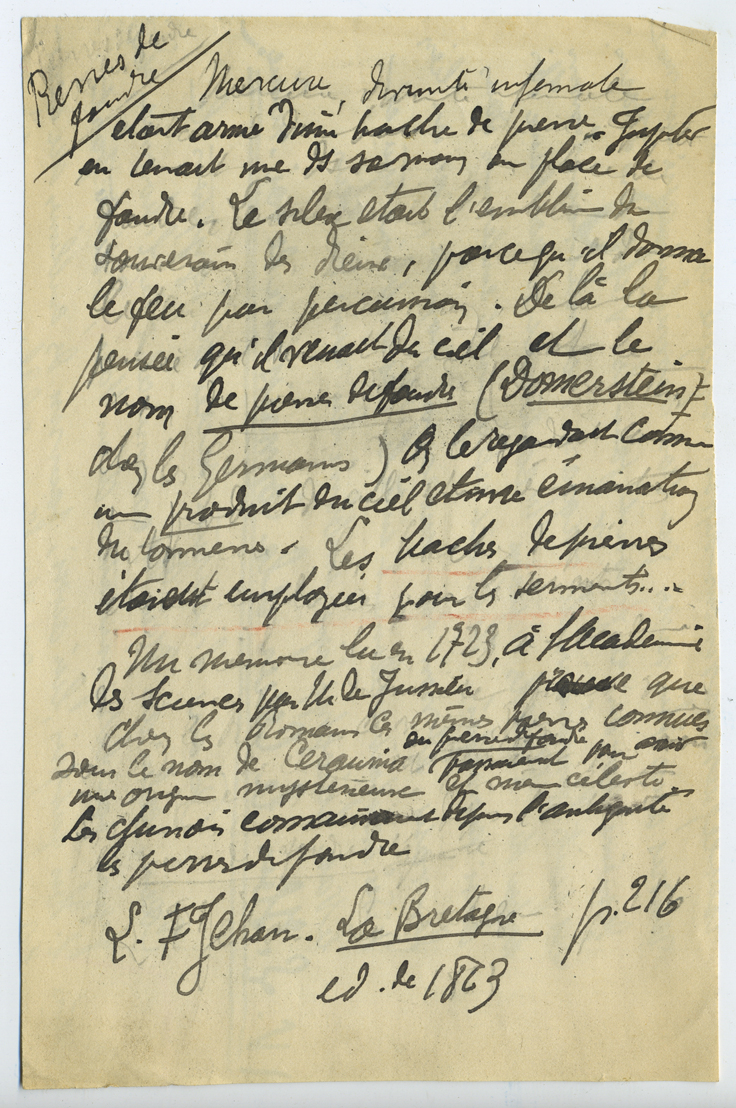 Pierres de
foudre
Mercure, divinité infernale
etait armé d'une hache de pierre. Jupiter
en tenait une ds sa main en place de
foudre. Le silex etait l'emblème du
souverain des dieux, parcequ'il donna
le feu par percussion. De là la
pensée qu'il venait du ciel et le
nom de pierres de foudre (Donnerstein
chez les Germains) On le regardait comme
un produit du ciel et une émanation
du tonnerre. Les haches de pierres
étaient employées pour les serments....
Un memoire lu en 1723, à l'Academie
des Sciences par M. de Jussieu prouve que
chez les Romains les mêmes pierres connues
sous le nom de Ceraunia ou pierres de foudre passaient pour avoir
une origine mystérieuse et même céleste.
Les chinois connaissent depuis l'antiquité
les pierres de foudre
L. F Jehan. La Bretagne p. 216
ed. de 1863